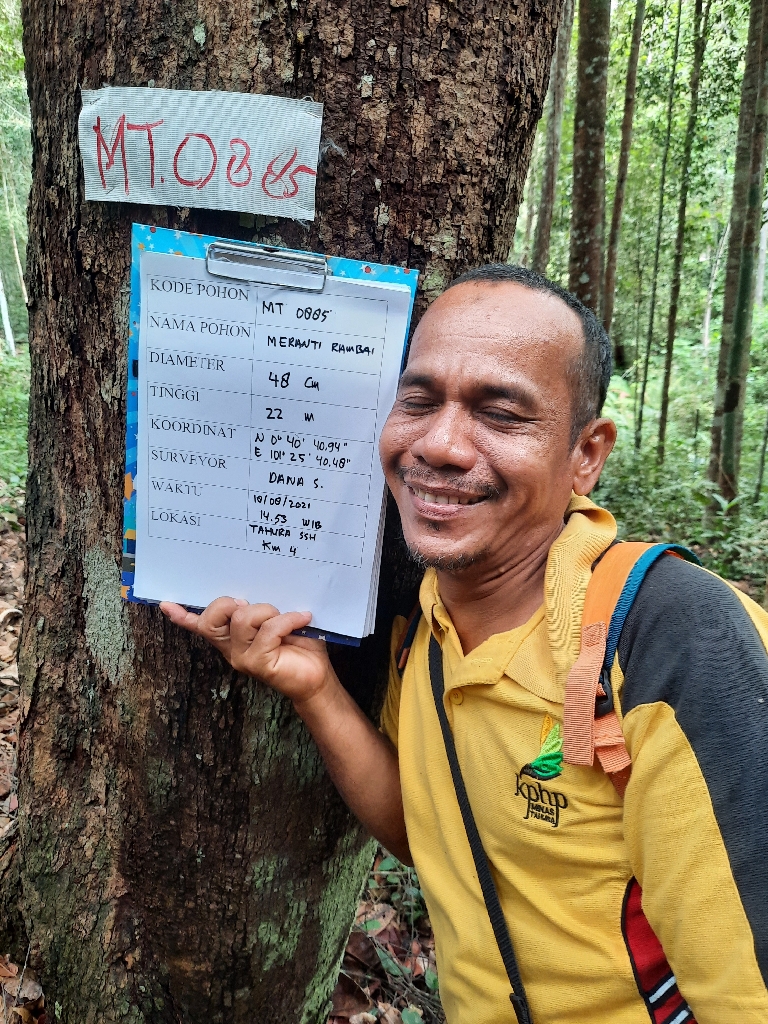 MT.0885
KODE POHON MT 0885
NAMA POHON MERANTI RAMBAI
DIAMETER 48 Cm
TINGGI 22 m
KOORDINAT N 0° 40' 40.94"
E 101° 25' 40.48"
SURVEYOR DANA S.
WAKTU 18/08/2021
14.53 WIB
LOKASI TAHURA SSH
Km 4
kphp
MINAS
TAHURA